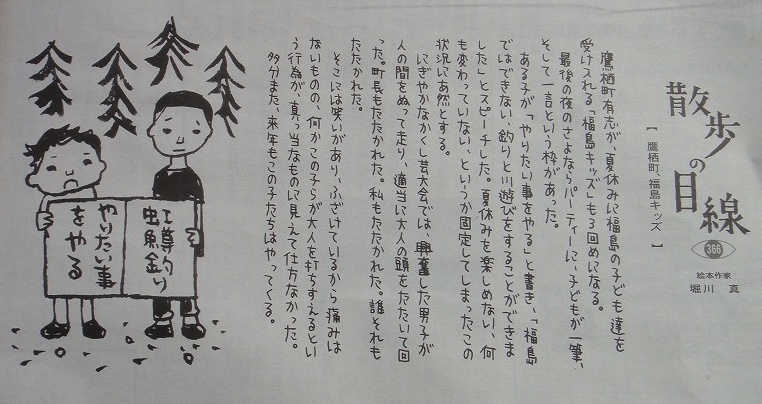 散歩の目線
366
【鷹栖町、福島キッズ】
絵本作家
堀川 真
鷹栖町有志が、夏休みに福島の子ども達を
受け入れる「福島キッズ」も3回めになる。
最後の夜のさよならパーティーに、子どもが一筆、
そして一言という枠があった。
ある子が「やりたい事をやる」と書き、「福島
ではできない、釣りと川遊びをすることができま
した」とスピーチした。夏休みを楽しめない、何
も変わっていない、というか固定してしまったこの
状況にあ然とする。
にぎやかなかくし芸大会では、興奮した男子が
人の間をぬって走り、適当に大人の頭をたたいて回
った。町長もたたかれた。私もたたかれた。誰それも
たたかれた。
そこには笑いがあり、ふざけているから痛みは
ないものの、何かこの子らが大人を打ちすえるとい
う行為が、真っ当なものに見えて仕方なかった。
多分また、来年もこの子たちはやってくる。
虹鱒釣り
やりたい事
をやる